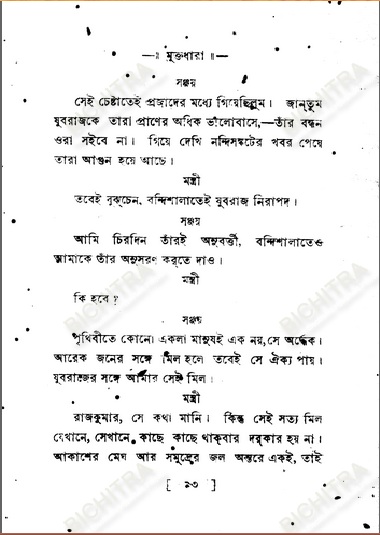 —॥ মুক্তধারা ॥—
সঞ্জয়
সেই চেষ্টাতেই প্রজাদের মধ্যে গিয়েছিলুম। জান্‌তুম
যুবরাজকে তারা প্রাণের অধিক ভালোবাসে,—তাঁর বন্ধন
ওরা সইবে না। গিয়ে দেখি নন্দিসঙ্কটের খবর পেয়ে
তারা আগুন হয়ে আছে।
মন্ত্রী
তবেই বুঝ্‌চেন, বন্দিশালাতেই যুবরাজ নিরাপদ।
সঞ্জয়
আমি চিরদিন তাঁরই অনুবর্ত্তী, বন্দিশালাতেও
আমাকে তাঁর অনুসরণ কর্‌তে দাও।
মন্ত্রী
কি হবে?
সঞ্জয়
পৃথিবীতে কোনো একলা মানুষই এক নয়, সে অর্দ্ধেক।
আরেক জনের সঙ্গে মিল হলে তবেই সে ঐক্য পায়।
যুবরাজের সঙ্গে আমার সেই মিল।
মন্ত্রী
রাজকুমার, সে কথা মানি। কিন্তু সেই সত্য মিল
যেখানে, সেখানে, কাছে কাছে থাক্‌বার দরকার হয় না।
আকাশের মেঘ আর সমুদ্রের জল অন্তরে একই, তাই
BICHITRA